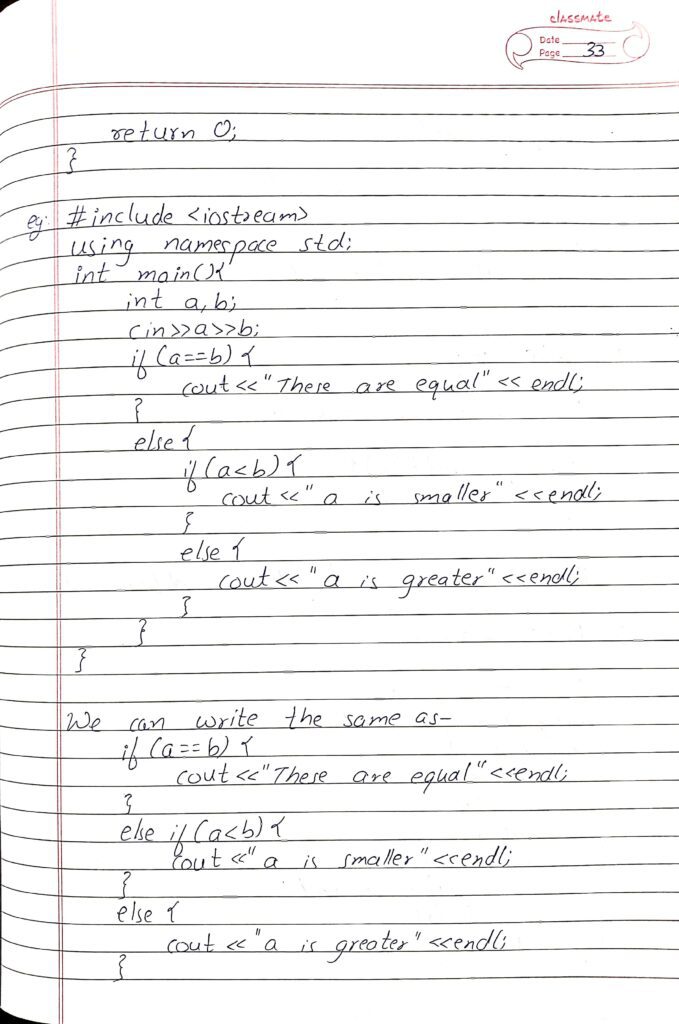 classmate
Date
Page 33
return 0;
}
eg: #include <iostream>
using namespace std;
int main(){
int a,b;
cin>>a>>b;
if (a==b) {
cout<<"These are equal"<< endl;
}
else {
if (a<b) {
cout <<" a is smaller" <<endl;
}
else {
cout<<"a is greater"<<endl;
}
}
}
We can write the same as-
if (a==b) {
cout<<"These are equal"<<endl;
}
else if (a<b) {
cout <<" a is smaller"<<endl;
}
else {
cout << "a is greater" <<endl;
}